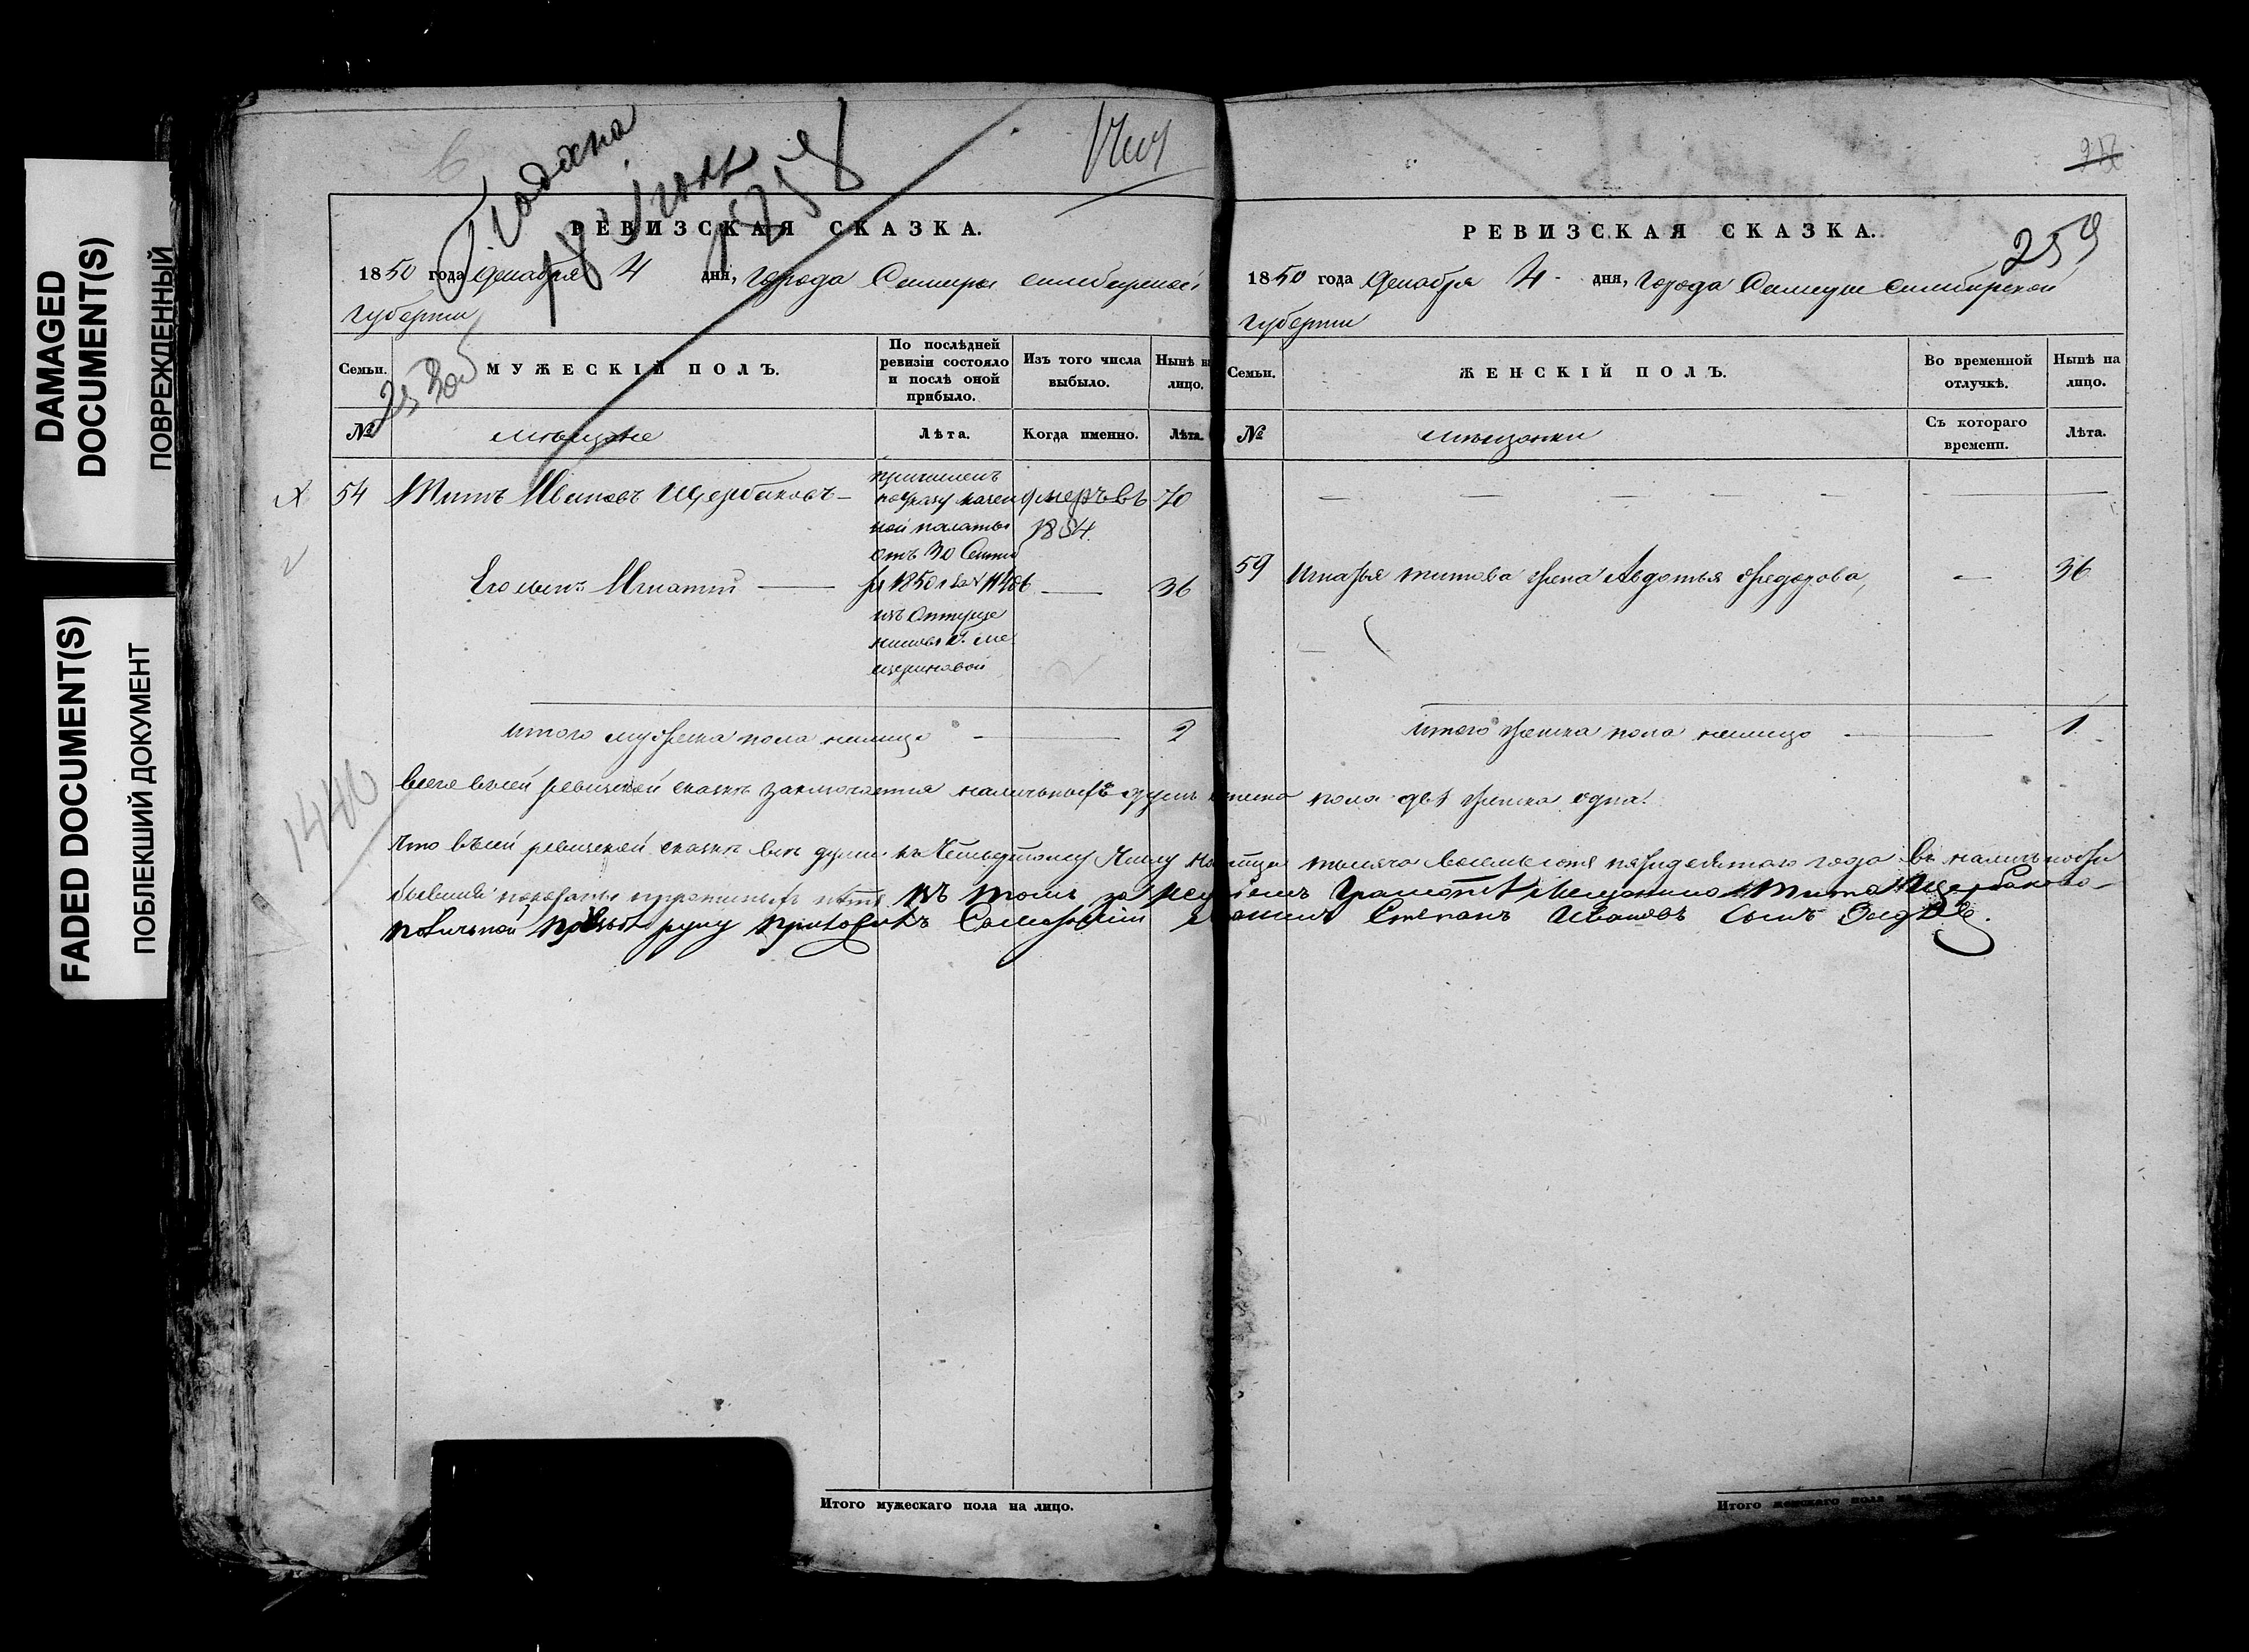 DAMAGED
DOCUMENT(S)
ПОВРЕЖДЕННЫЙ
FADED DOCUMENT(S)
ПОБЛЕКШИЙ ДОКУМЕНТ
Подана
18
1446
РЕВИЗСКАЯ СКАЗКА.
1850 года Декабря 4 дня, Города Самары Симбирской
губернии
Семьи.
МУЖЕСКІЙ ПОЛЪ.
По послѣдней
ревизіи состояло
и послѣ оной
прибыло.
Изъ того числа
выбыло.
Нынѣ на
лицо.
№
мѣщане
Лѣта.
Когда именно.
Лѣта.
54 Титъ Ивановъ Щербаковъ
причисленъ
по указу казен
ной палаты
отъ 30 Сентяб
ря 1850 г за №
изъ Отпуще
Ме
щериновой
умеръ въ
70
Его сынъ Игнатій
36
итого мужеска пола налицо 2
РЕВИЗСКАЯ СКАЗКА.
259
1850 года Декабря 4 дня, Города Самары Симбирской
губернии
Семьи.
ЖЕНСКІЙ ПОЛЪ.
Во временной
отлучкѣ.
Нынѣ на
лицо.
№
мѣщанки
Съ котораго
времени.
Лѣта.
59 Игнатья Титова жена Авдотья Федорова, 36
итого женска пола налицо 1
Всего въ сей ревизской сказкѣ заключается наличныхъ душъ мужеска пола двѣ женска одна.
Что въ сей ревизской сказкѣ всѣ души къ тысяча восемьсотъ пятидесятаго года въ наличности
бывшии показаны и прописныхъ нѣтъ въ томъ за неумѣнiемъ Грамотѣ Мещанина Тита Щербакова
по личной прозьбе руку приложилъ Самарскiй Мещанинъ Степанъ Ивановъ Сынъ
Итого мужескаго пола на лицо.
Итого женскаго пола на